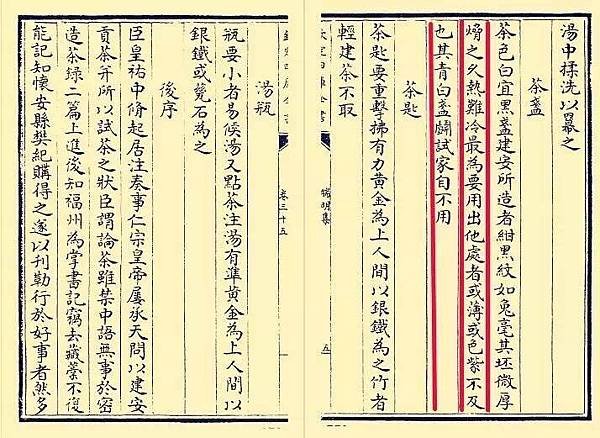 湯中揉洗以羃之
茶盞
茶色白宜黑盞建安所造者紺黑紋如兔毫其坯微厚
熁之久熱難冷最為要用出他處者或薄或色紫不及
也其青白盞鬬試家自不用
茶匙
茶匙要重擊拂有力黃金為上人間以銀鐵為之竹者
輕建茶不取
欽定四庫全書
端明集
卷三十五
五
湯瓶
瓶要小者易候湯又點茶注湯有準黃金為上人間以
銀鐵或甆石為之
後序
臣皇祐中脩起居注奏事仁宗皇帝屢承天問以建安
貢茶并所以試茶之狀臣謂論茶雖禁中語無事於密
造茶録二篇上進後知福州為掌書記竊去藏藁不復
能記知懷安縣樊紀購得之遂以刋勒行於好事者然多